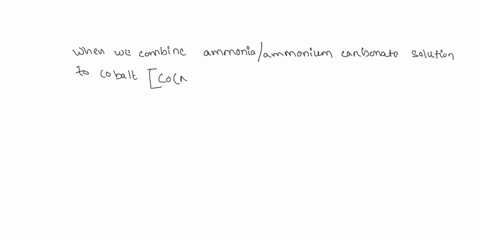 when we combine ammonia/ammonium carbonate solution
to cobalt [Co(N